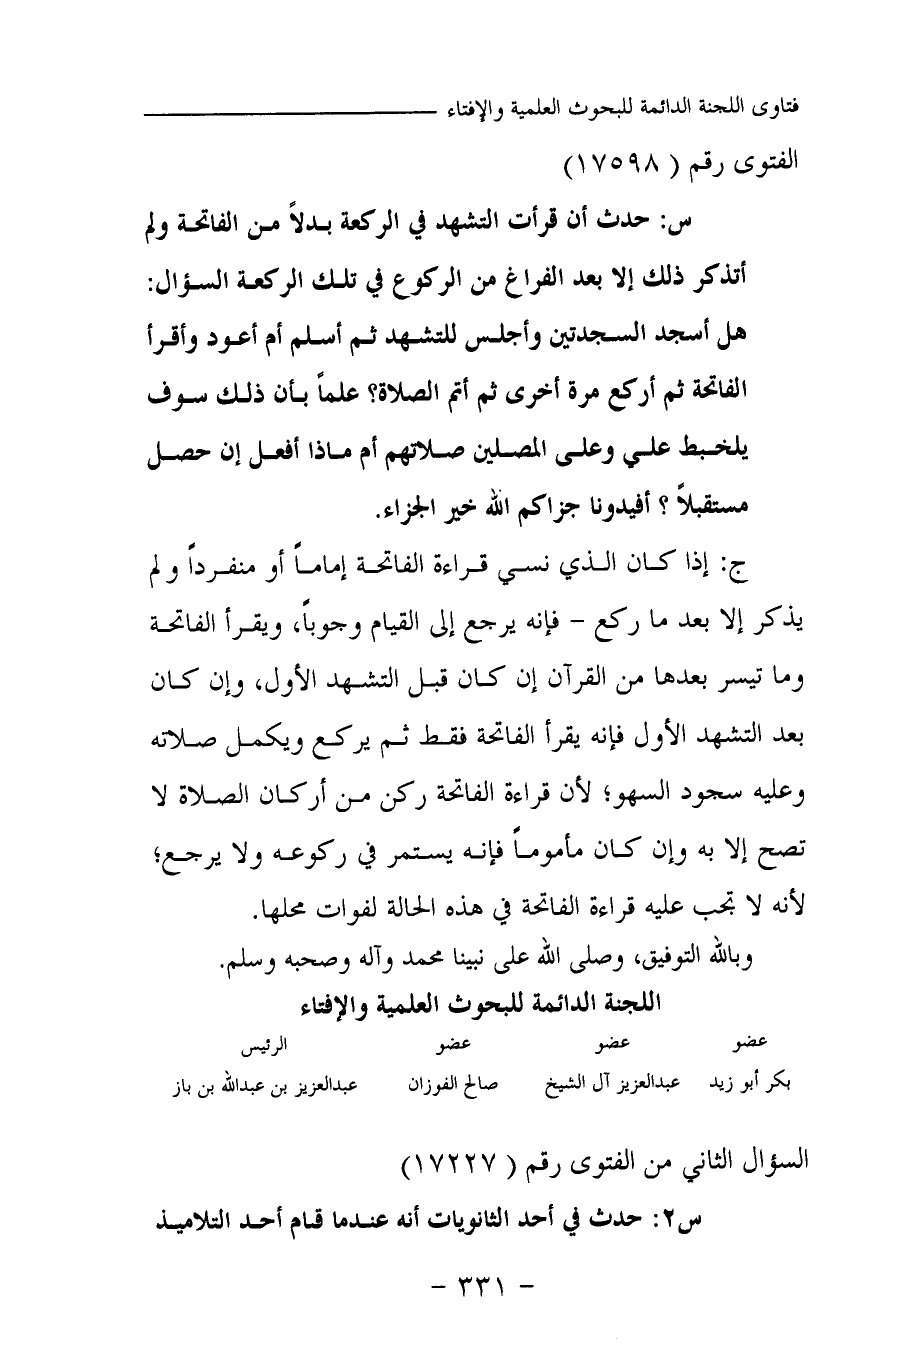 فتاوى اللجنة الدائمة للبحوث العلمية والإفتاء
الفتوى رقم ( ١٧٥٩٨)
س: حدث أن قرأت التشهد في الركعة بدلاً من الفاتحة ولم
أتذكر ذلك إلا بعد الفراغ من الركوع في تلك الركعة السؤال:
هل أسجد السجدتين وأجلس للتشهد ثم أسلم أم أعود وأقرأ
الفاتحة ثم أركع مرة أخرى ثم أتم الصلاة؟ علماً بأن ذلك سوف
يلخبط علي وعلى المصلين صلاتهم أم ماذا أفعل إن حصل
مستقبلاً ؟ أفيدونا جزاكم الله خير الجزاء.
ج: إذا كان الذي نسي قراءة الفاتحة إماماً أو منفرداً ولم
يذكر إلا بعد ما ركع – فإنه يرجع إلى القيام وجوباً، ويقرأ الفاتحة
وما تيسر بعدها من القرآن إن كان قبل التشهد الأول، وإن كان
بعد التشهد الأول فإنه يقرأ الفاتحة فقط ثم يركع ويكمل صلاته
وعليه سجود السهو؛ لأن قراءة الفاتحة ركن من أركان الصلاة لا
تصح إلا به وإن كان مأموماً فإنه يستمر في ركوعه ولا يرجع؛
لأنه لا تجب عليه قراءة الفاتحة في هذه الحالة لفوات محلها.
وبالله التوفيق، وصلى الله على نبينا محمد وآله وصحبه وسلم.
اللجنة الدائمة للبحوث العلمية والإفتاء
عضو عضو عضو الرئيس
بكر أبو زيد عبدالعزيز آل الشيخ صالح الفوزان عبدالعزيز بن عبدالله بن باز
السؤال الثاني من الفتوى رقم ( ١٧٢٢٧)
س٢: حدث في أحد الثانويات أنه عندما قام أحد التلاميذ
– ٣٣١ –